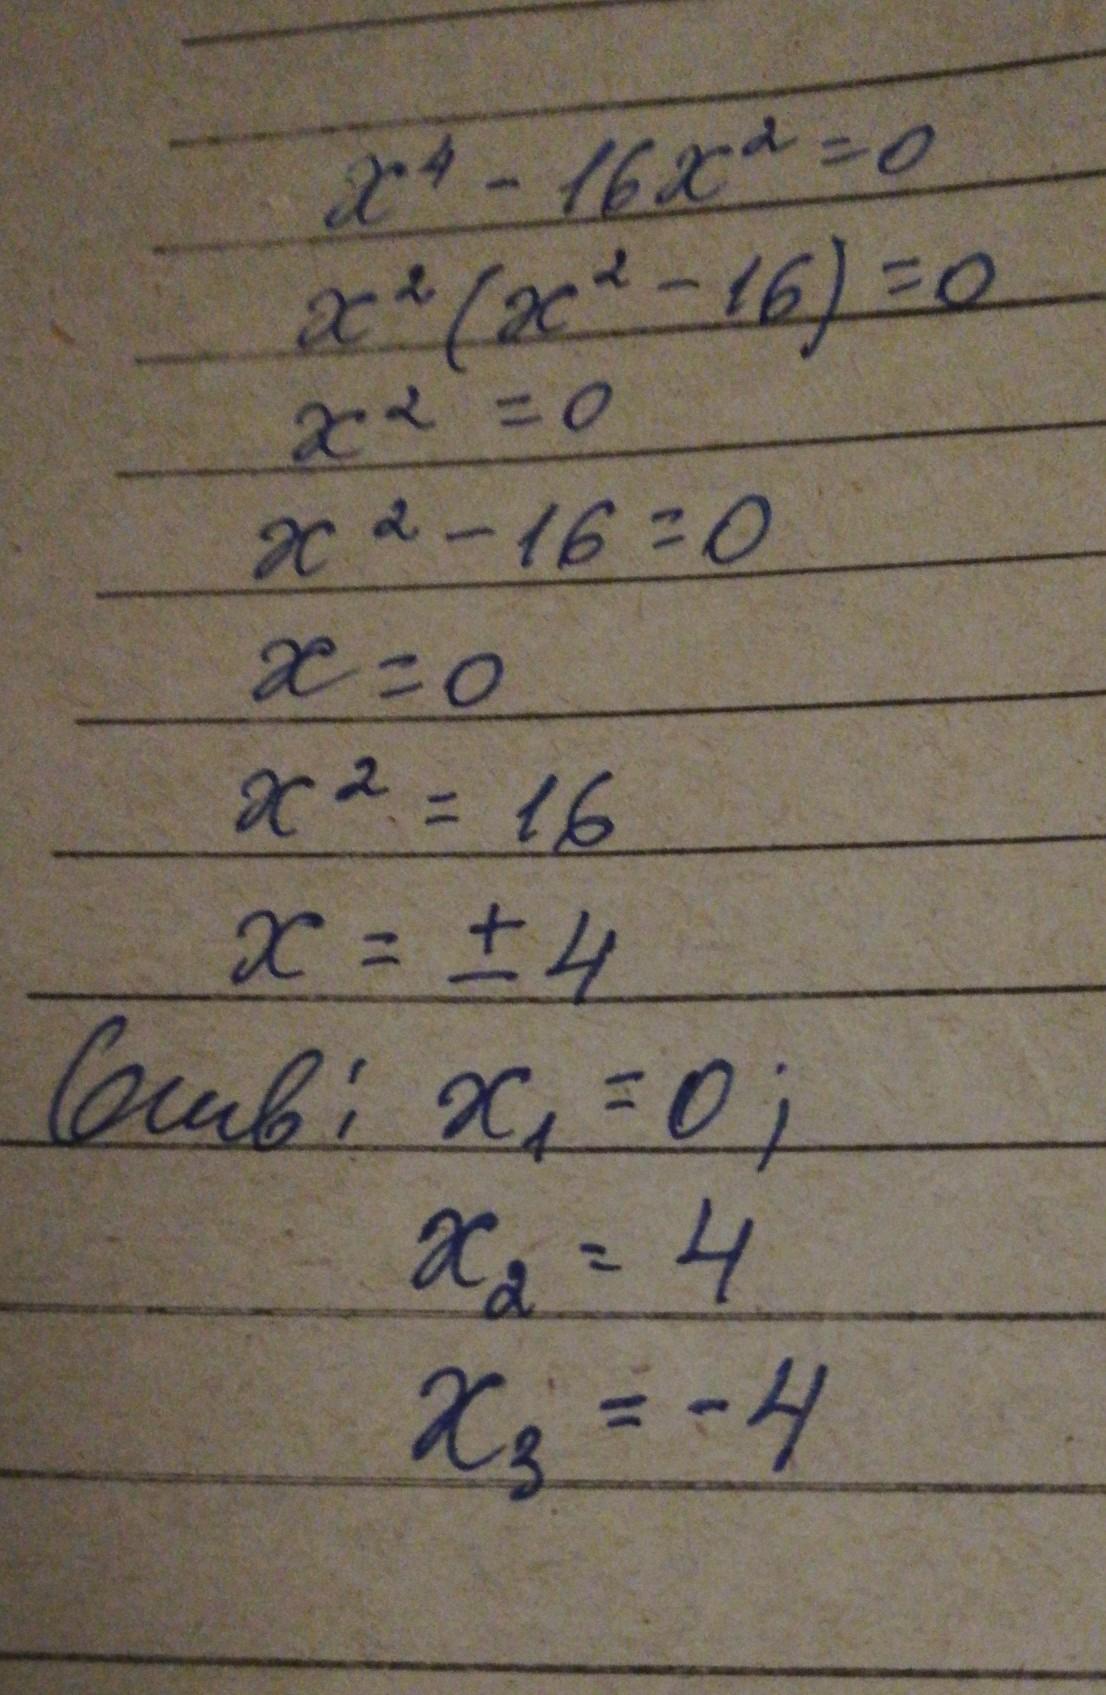 x⁴ - 16x² = 0
x² (x² - 16) = 0
x² = 0
x² - 16 = 0
x = 0
x² = 16
x = ± 4
x₁ = 0 ;
x₂ = 4
x₃ = -4